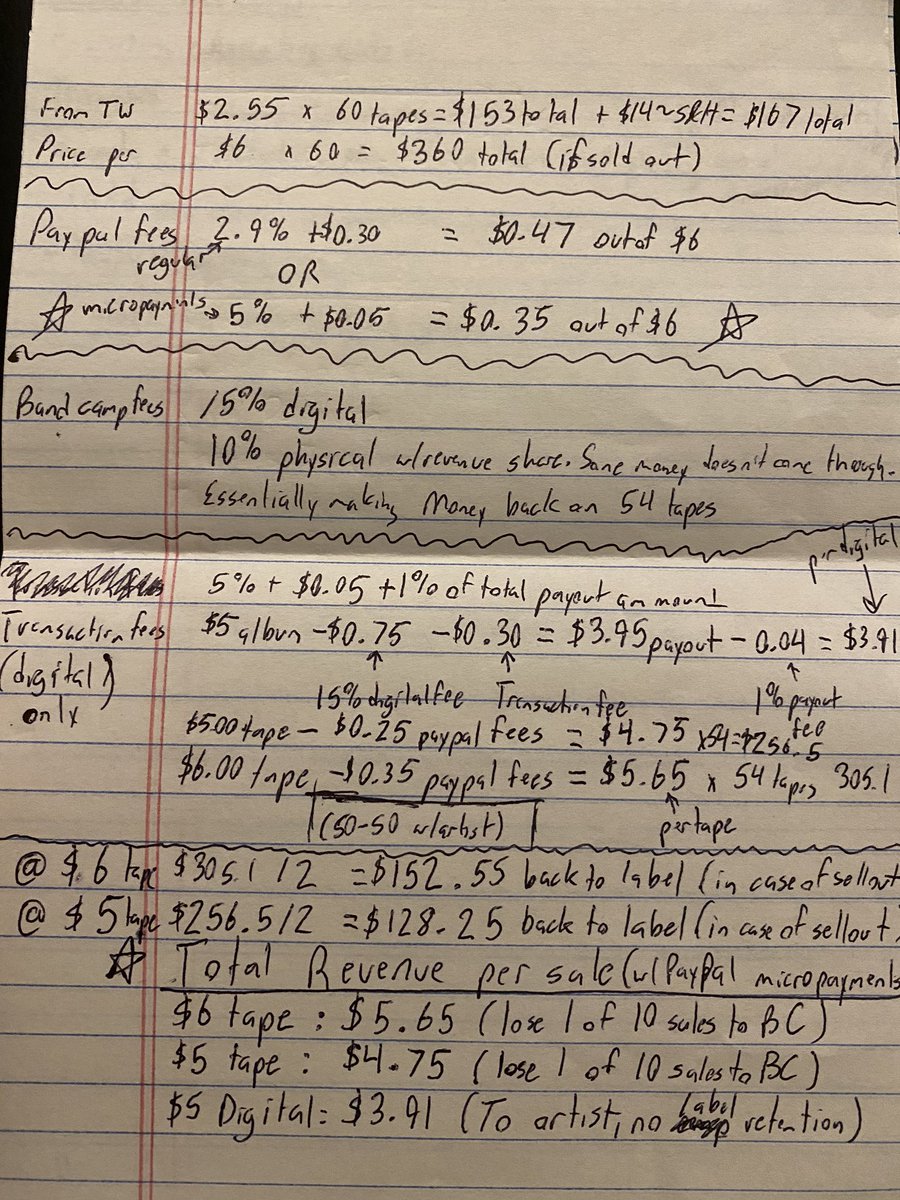 From TW $2.55 x 60 tapes = $153 total + $14~S&H = $167 total
Price per $6 x 60 = $360 total (if sold out)
Paypal fees 2.9% + $0.30 = $0.47 out of $6
regular
OR
micropayments 5% + $0.05 = $0.35 out of $6
Bandcamp fees 15% digital
10% physical w/revenue share. Some money doesn't come through.
Essentially making money back on 54 tapes
per digital
5% + $0.05 + 1% of total payout ammount
Transaction fees $5 album - $0.75 - $0.30 = $3.95 payout - 0.04 = $3.91
(digital) only
15% digital fee Transaction fee 1% payout fee
$5.00 tape - $0.25 paypal fees = $4.75 x54 = $256.5
$6.00 tape - $0.35 paypal fees = $5.65 x 54 tapes 305.1
(50-50 w/artist) per tape
@ $6 tape $305.1/2 = $152.55 back to label (in case of sellout
@ $5 tape $256.5/2 = $128.25 back to label (in case of sellout)
Total Revenue per sale (w/ PayPal micropayments
$6 tape : $5.65 (lose 1 of 10 sales to BC)
$5 tape : $4.75 (lose 1 of 10 sales to BC)
$5 Digital: $3.91 (To artist, no label retention)